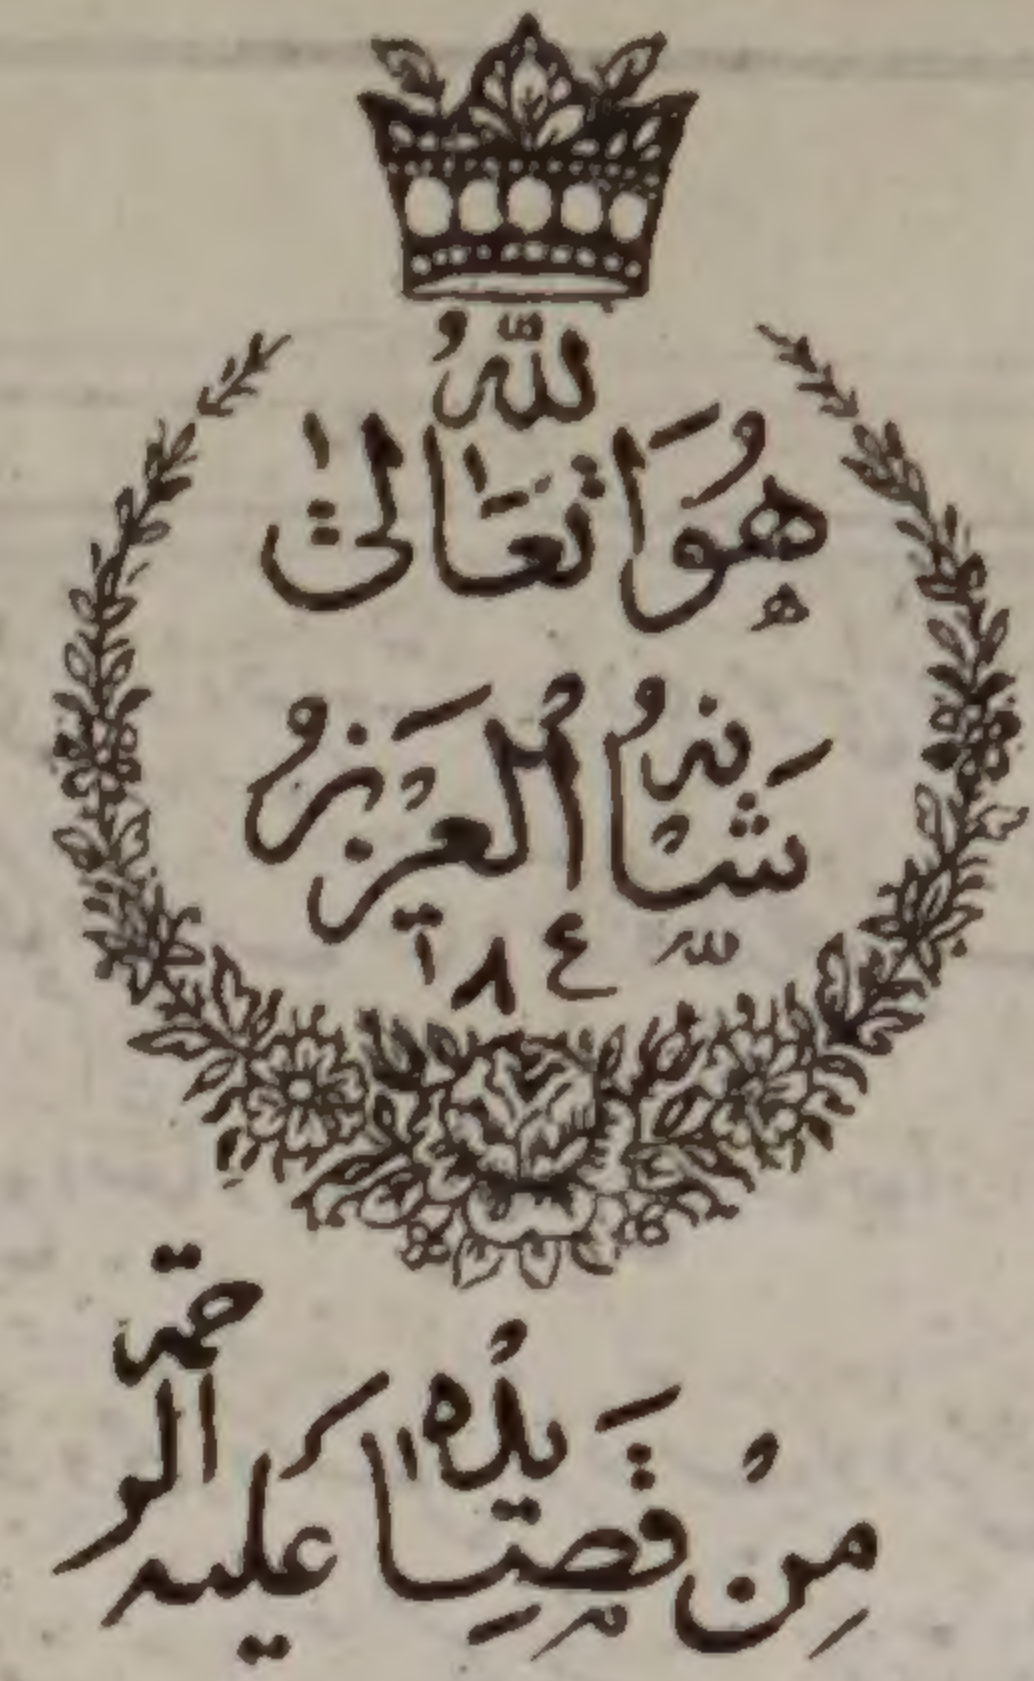 هُوَ اللّٰهُ تَعَالىٰ
شَانُهُ الْعَزِيزُ
١٨٤
مِنْ قَصَايِدِهِ عَلَيهِ الرحمة